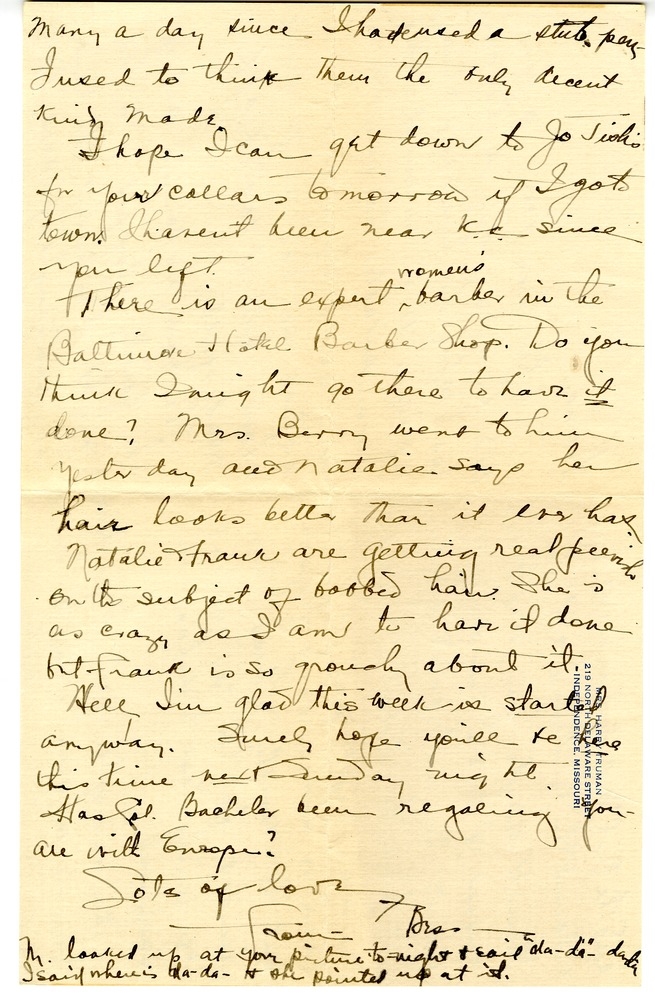 Many a day since I had used a stub pen
I used to think them the only decent
kind made.
I hope I can get down to Jo
for your collars tomorrow if I go to
town. I haven't been near K.C. since
you left.
There is an expert women's barber in the
Baltimore Hotel Barber Shop. Do you
think I might go there to have it
done? Mrs. Berry went to him
yesterday and Natalie says her
hair looks better than it ever has.
Natalie & Frank are getting real peevish
on the subject of bobbed hair. She is
as crazy as I am to have it done
but Frank is so grouchy about it.
Well I'm glad this week is started
anyway. Surely hope you'll be here
this time next Sunday night.
Has Col. Bacheler been regaling you-
are with Europe?
Lots of love
From Bess
M. looked up at your picture to-night & said "da-da" - da-da
I said where is da-da- & she pointed up at it.
MRS. HARRY TRUMAN
219 NORTH DELAWARE STREET
INDEPENDENCE, MISSOURI